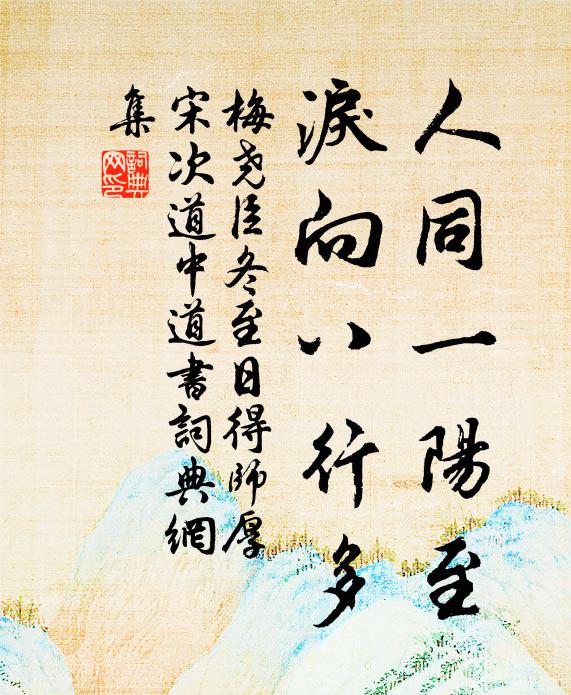 人同一陽至
淚向八行多
梅堯臣冬至日得師厚
宋次道中道書詞典網
集
詞典
网印